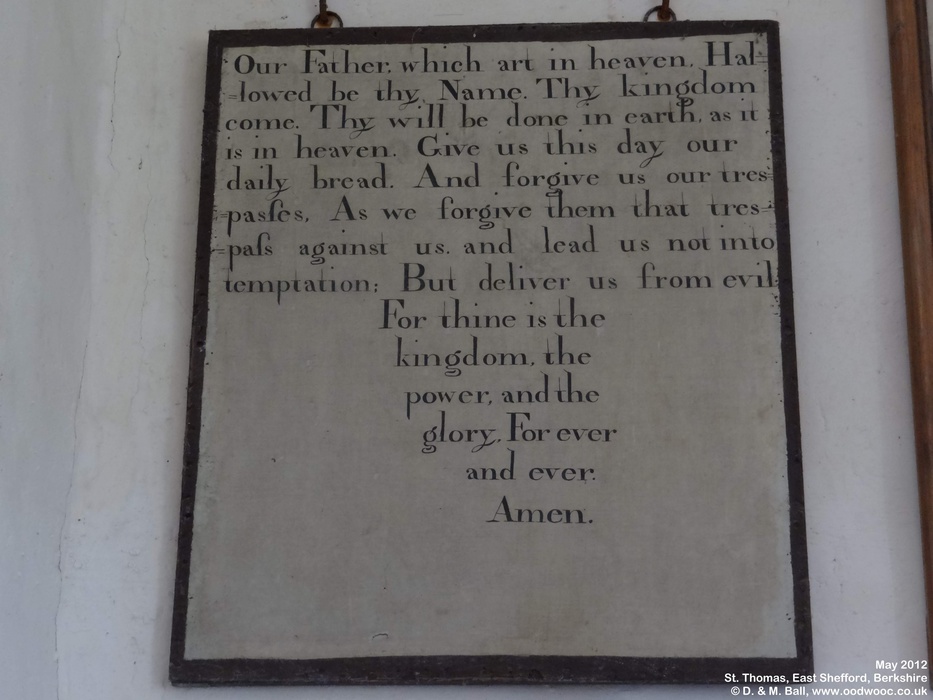 Our Father, which art in heaven, Hal=
=lowed be thy Name. Thy kingdom
come. Thy will be done in earth, as it
is in heaven. Give us this day our
daily bread. And forgive us our tres=
=paſses, As we forgive them that tres=
=paſs against us. and lead us not into
temptation; But deliver us from evil:
For thine is the
kingdom, the
power, and the
glory, For ever
and ever.
Amen.
May 2012
St. Thomas, East Shefford, Berkshire
© D. & M. Ball, www.oodwooc.co.uk